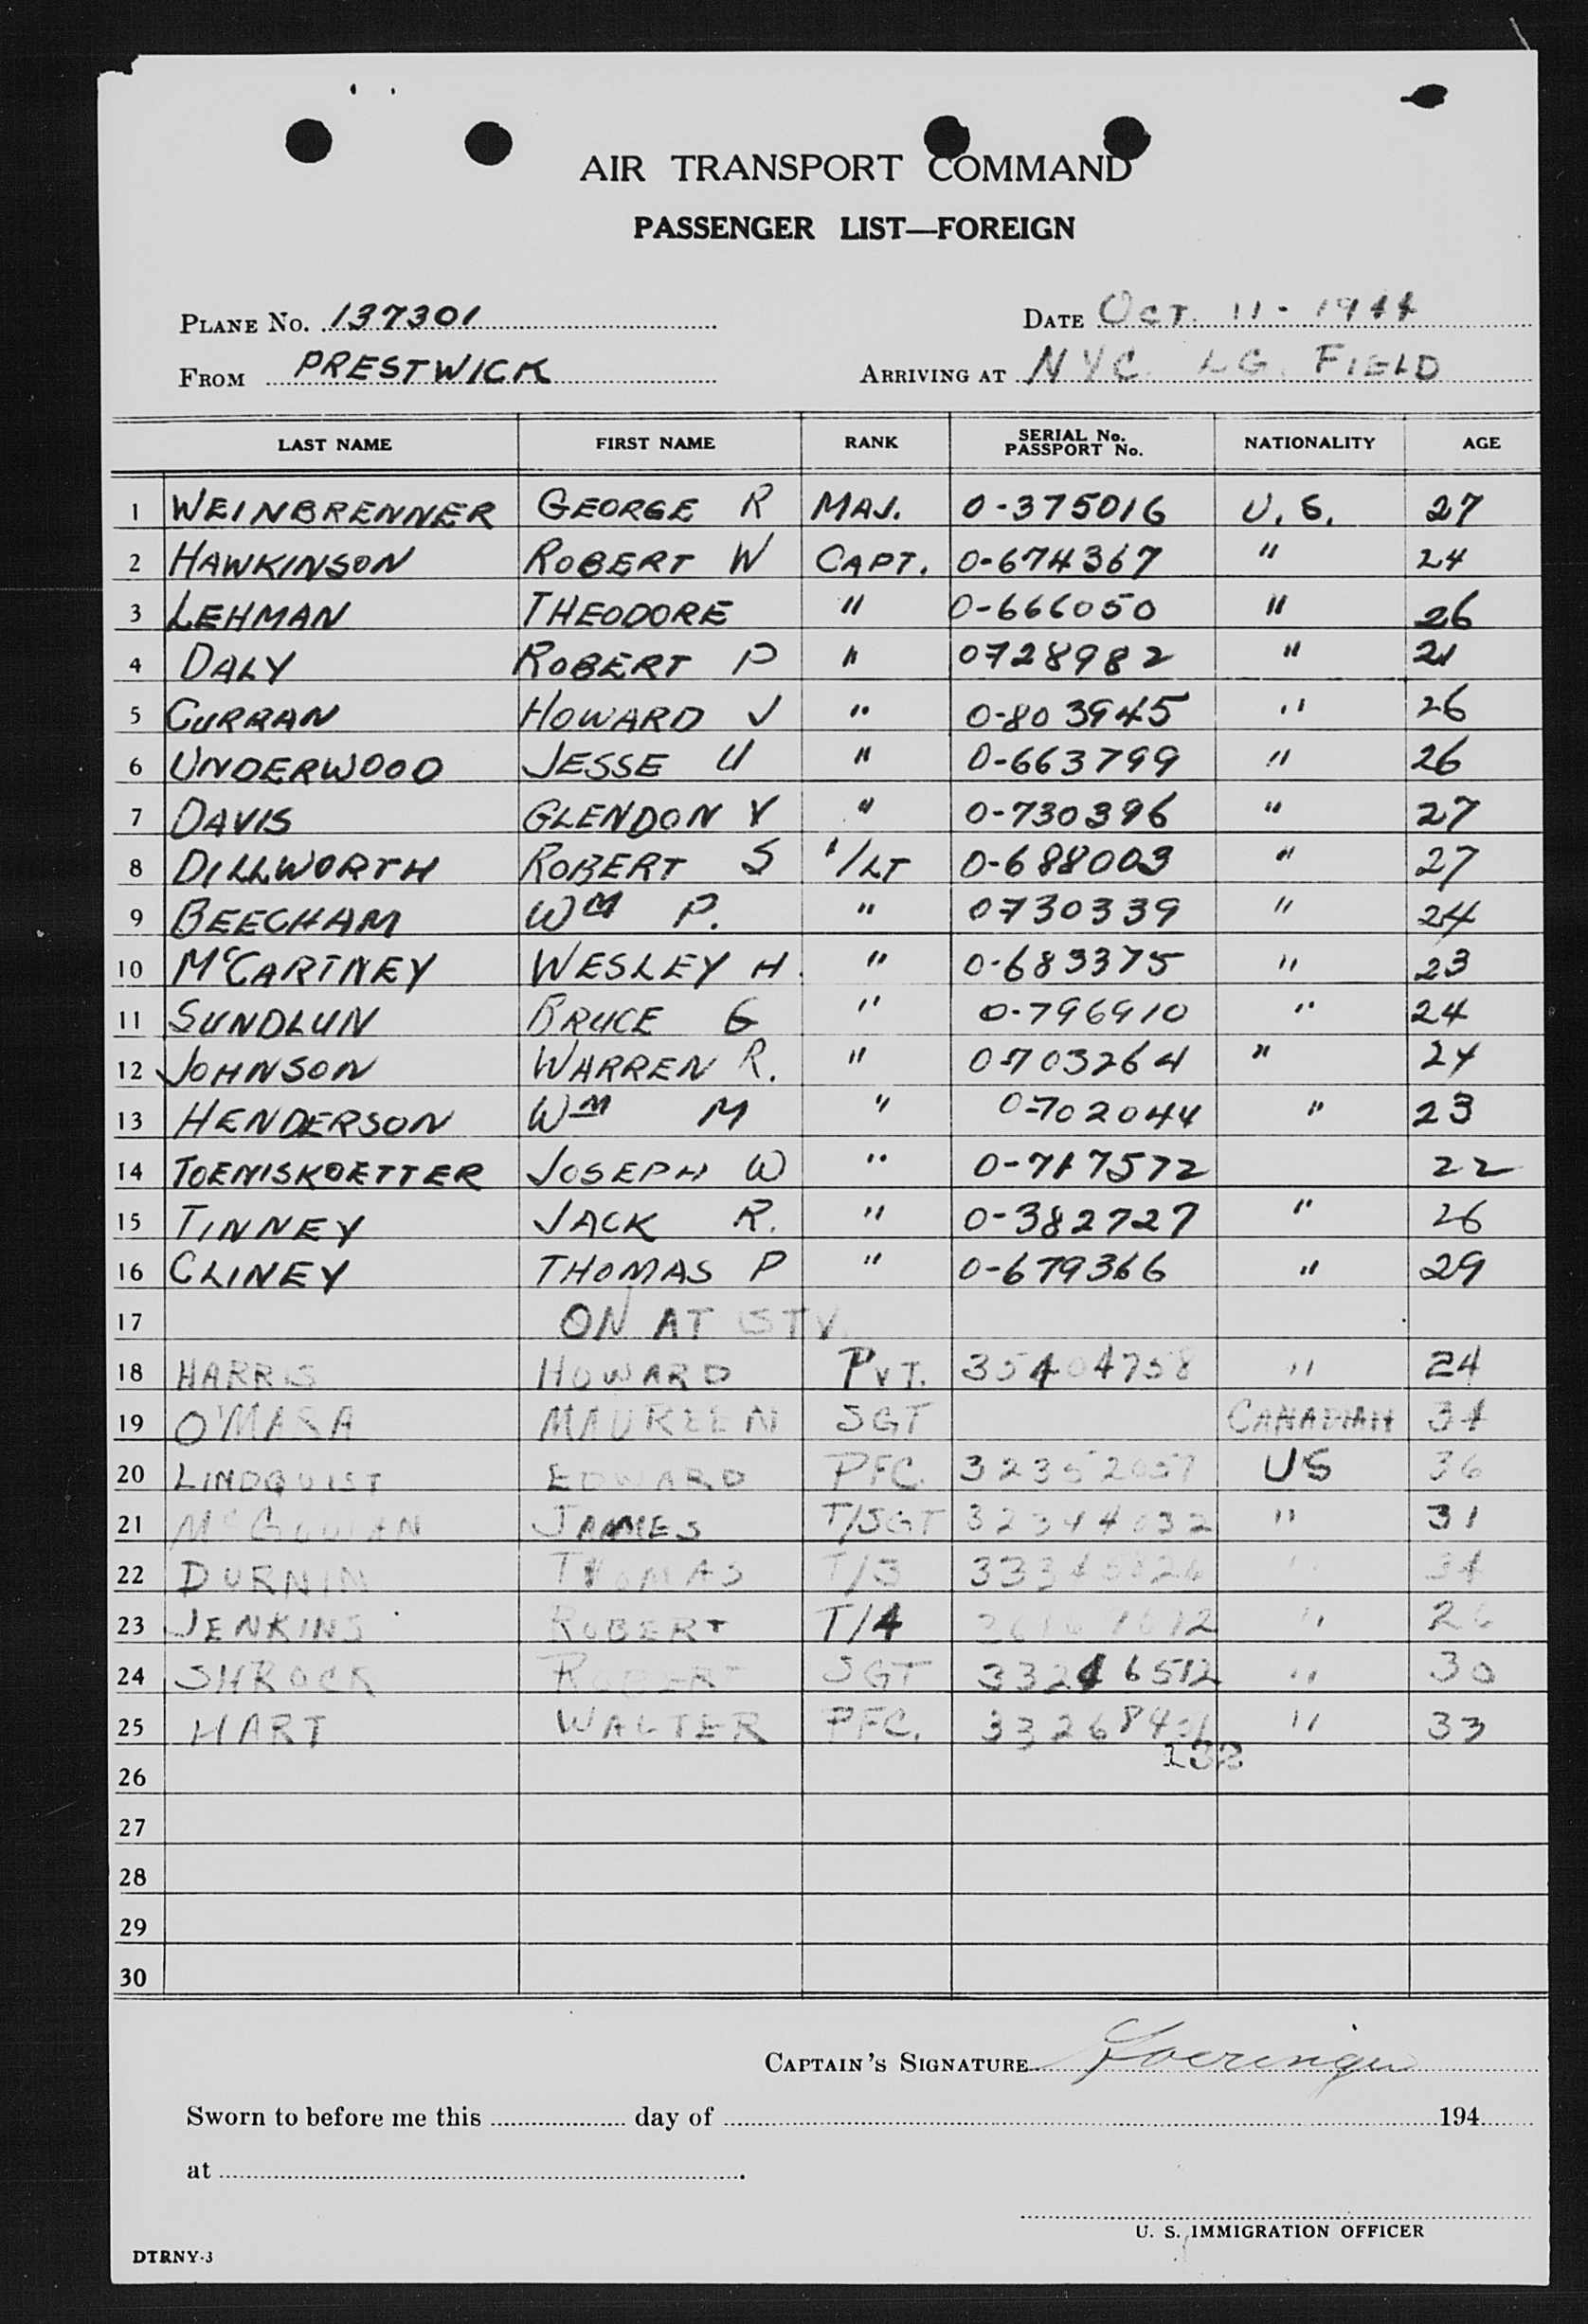 AIR TRANSPORT COMMAND
PASSENGER LIST—FOREIGN
PLANE No. 137301 DATE OCT. 11 - 1944
FROM PRESTWICK ARRIVING AT NYC. LG. FIELD
LAST NAME FIRST NAME RANK SERIAL No. PASSPORT No. NATIONALITY AGE
1 WEINBRENNER GEORGE R MAJ. 0-375016 U.S. 27
2 HAWKINSON ROBERT W CAPT. 0-674367 " 24
3 LEHMAN THEODORE " 0-666050 " 26
4 DALY ROBERT P " 0728982 " 21
5 CURRAN HOWARD J " 0-803945 " 26
6 UNDERWOOD JESSE U " 0-663799 " 26
7 DAVIS GLENDON V " 0-730396 " 27
8 DILLWORTH ROBERT S 1/LT 0-688003 " 27
9 BEECHAM WM P. " 0730339 " 24
10 McCARTNEY WESLEY H. " 0-683375 " 23
11 SUNDLUN BRUCE G " 0-796910 " 24
12 JOHNSON WARREN R. " 0-703264 " 24
13 HENDERSON WM M " 0-702044 " 23
14 TOENISKOETTER JOSEPH W " 0-717572 22
15 TINNEY JACK R. " 0-382727 " 26
16 CLINEY THOMAS P " 0-679366 " 29
17 ON AT STV.
18 HARRIS HOWARD PVT. 35404758 " 24
19 O'MARA MAUREEN SGT CANADIAN 34
20 LINDQUIST EDWARD PFC. 32352057 US 36
21 McGOWAN JAMES T/SGT 32344032 " 31
22 DURNIN THOMAS T/3 " 34
23 JENKINS ROBERT T/4 " 26
24 SHROCK ROBERT SGT 33246512 " 30
25 HART WALTER PFC. " 33
132
26
27
28
29
30
CAPTAIN'S SIGNATURE
Sworn to before me this day of 194
at .
U. S. IMMIGRATION OFFICER
DTRNY-3